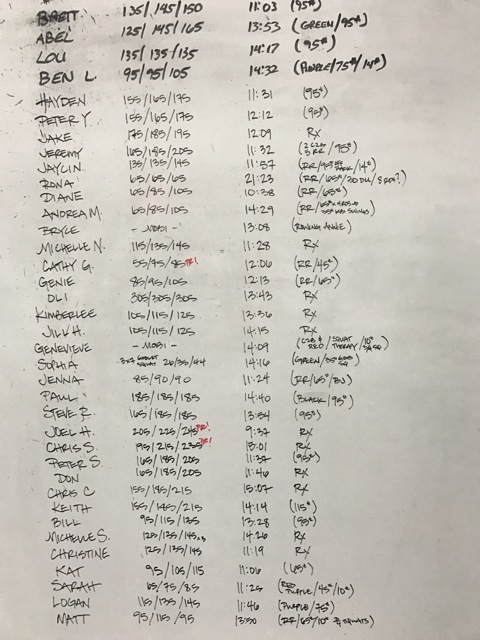 BRETT 135/185/150 11:03 (95#)
ABEL 125/145/165 13:53 (GREEN/95#)
LOU 135/135/135 14:17 (95#)
BEN L. 95/95/105 14:32 (PURPLE/75#/14")
HAYDEN 155/165/175 11:31 (95#)
PETER Y. 155/165/175 12:12 (95#)
JAKE 175/185/195 12:09 RX
JEREMY 165/185/205 11:32
JAYLIN 135/135/145 11:57
RONA 65/65/65 21:23
DIANE 65/85/105 10:38 (RR/65#)
ANDREA M. 65/85/105 14:29
BRYCE - MOBI - 13:08 (ROWING ANKLE)
MICHELLE N. 115/135/145 11:28 RX
CATHY G. 55/75/95 PR! 12:06 (RR/45#)
GENIE 85/95/105 12:13 (RR/65#)
OLI 305/305/305 13:43 RX
KIMBERLEE 105/115/125 13:36 RX
JILL H. 105/115/125 14:15 RX
GENEVIEVE - MOBI - 14:09
SOPHIA 3x7 GOBLET SQUAT 26/35/44 14:16
JENNA 85/90/90 11:24
PAUL 185/185/185 14:40 (BLACK/95#)
STEVE R. 165/185/185 13:54 (95#)
JOEL H. 205/225/245 PR! 9:37 RX
CHRIS S. 195/215/235 PR! 13:01 RX
PETER S. 165/185/205 11:37 (95#)
DON 165/185/205 11:46 RX
CHRIS C 155/185/215 15:07 RX
KEITH 155/185/215 14:14 (115#)
BILL 95/115/135 13:28 (95#)
MICHELLE S. 125/135/145x3 14:26 RX
CHRISTINE 125/135/145 11:19 RX
KAT 95/105/115 11:06 (65#)
SARAH 65/75/85 11:25
LOGAN 115/135/145 11:46 (PURPLE/75#)
MATT 95/115/95 13:50